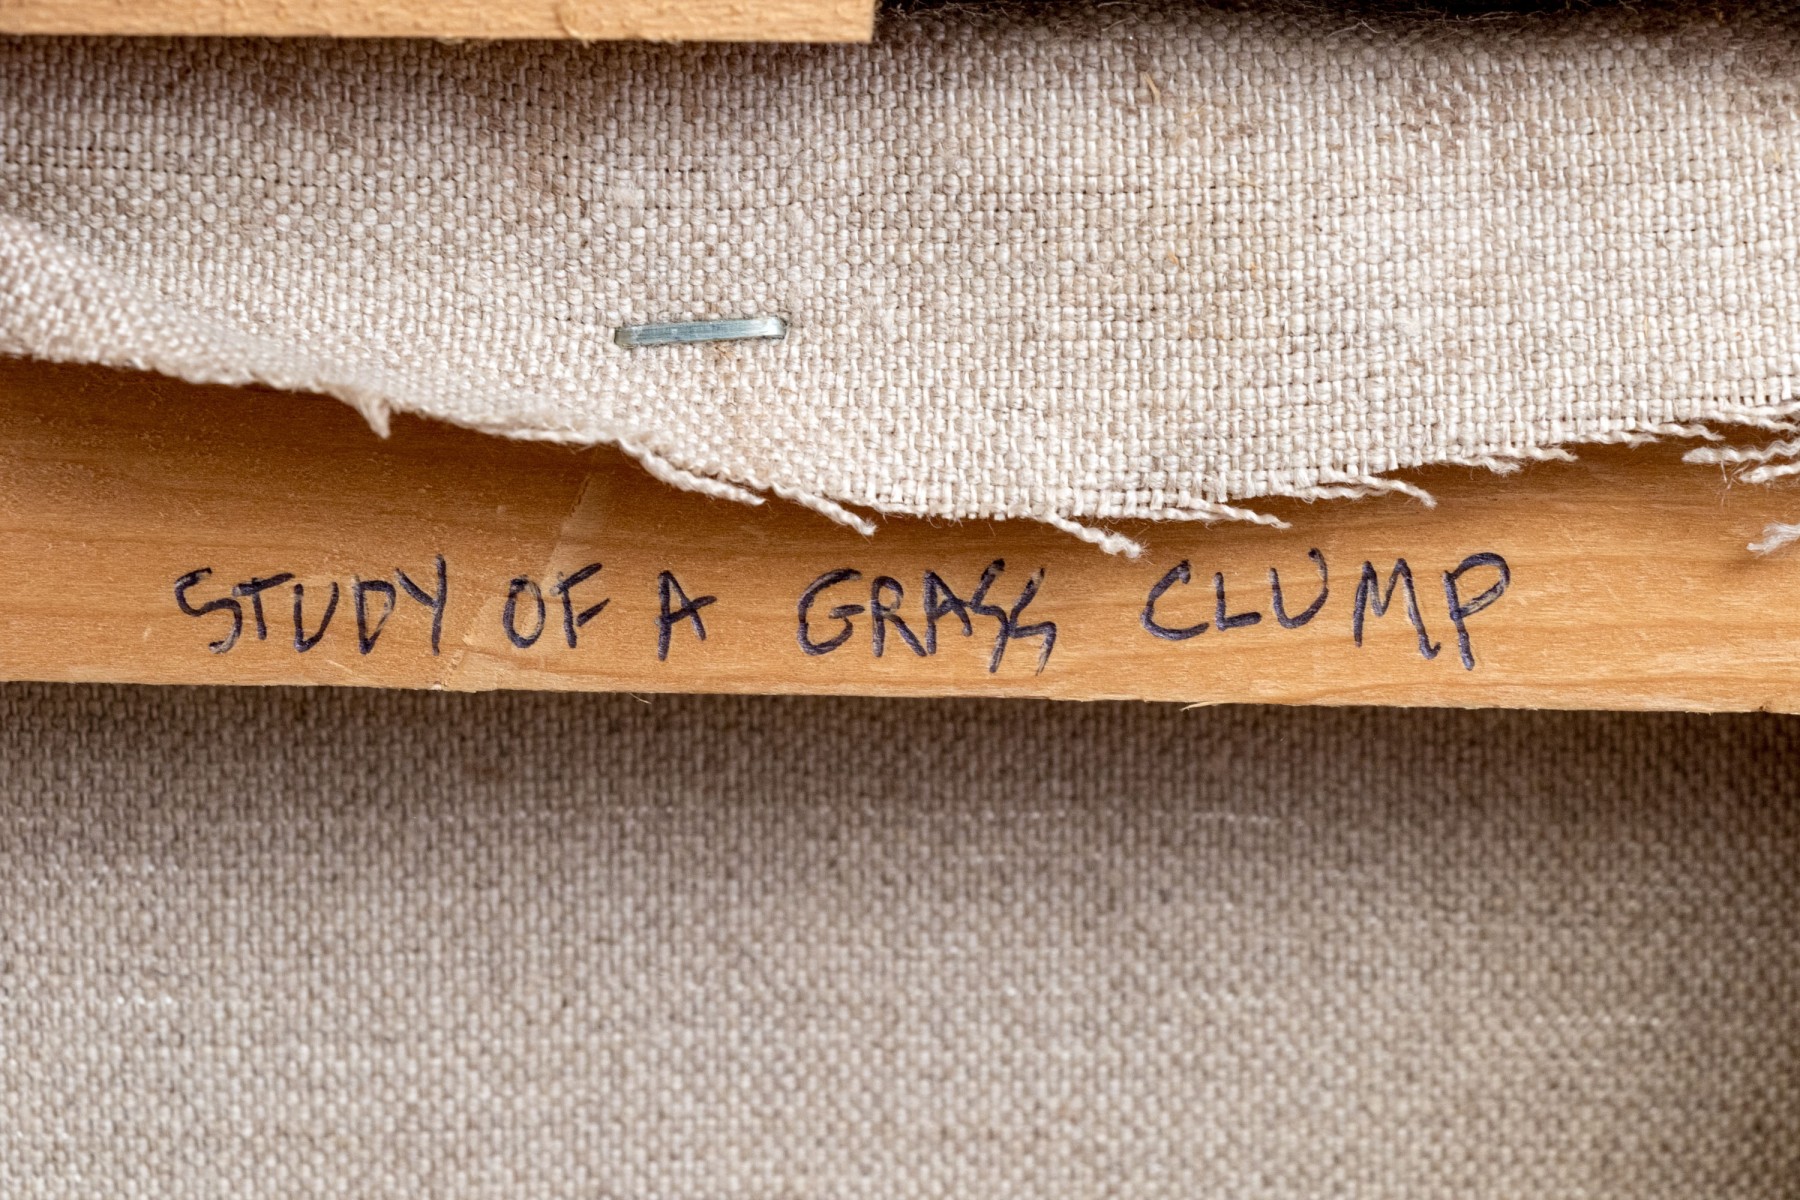 STUDY OF A GRASS CLUMP